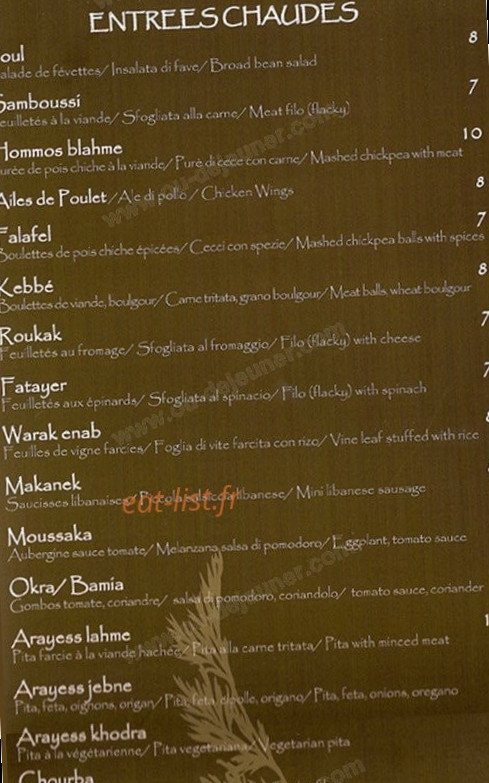 ENTREES CHAUDES
oul 8
alade de févettes/ Insalata di fave/ Broad bean salad
Samboussi 7
euilletés à la viande/ Sfogliata alla carne/ Meat filo (flacky)
Hommos blahme 10
urée de pois chiche à la viande/ Purè di cece con carne/ Mashed chickpea with meat
Ailes de Poulet/ Ale di pollo / Chicken Wings 8
Falafel 7
Boulettes de pois chiche épicées/ Cecci con spezie/ Mashed chickpea balls with spices
Kebbé 8
Boulettes de viande, boulgour/ Carne tritata, grano boulgour/ Meat balls, wheat boulgour
Roukak 7
Feuilletés au fromage/ Sfogliata al fromaggio/ Filo (flacky) with cheese
Fatayer 7
Feuilletés aux épinards/ Sfogliata al spinacio/ Filo (flacky) with spinach
Warak enab
Feuilles de vigne farcies/ Foglia di vite farcita con rizo/ Vine leaf stuffed with rice
Makanek
Saucisses libanaises/ libanese/ Mini libanese sausage
eat-list.fr
Moussaka
Aubergine sauce tomate/ Melanzana salsa di pomodoro/ Eggplant, tomato sauce
Okra/ Bamia
Gombos tomate, coriandre/ salsa di pomodoro, coriandolo/ tomato sauce, coriander
Arayess lahme 1
Pita farcie à la viande hachée/ Pita alla carne tritata/ Pita with minced meat
Arayess jebne
Pita, feta, oignons, origan/ Pita, feta, cipolle, origano/ Pita, feta, onions, oregano
Arayess khodra
Pita à la végétarienne/ Pita vegetariana/ Vegetarian pita
Chourba
www.ou-dejeuner.com
www.ou-dejeuner.com
www.ou-dejeuner.com